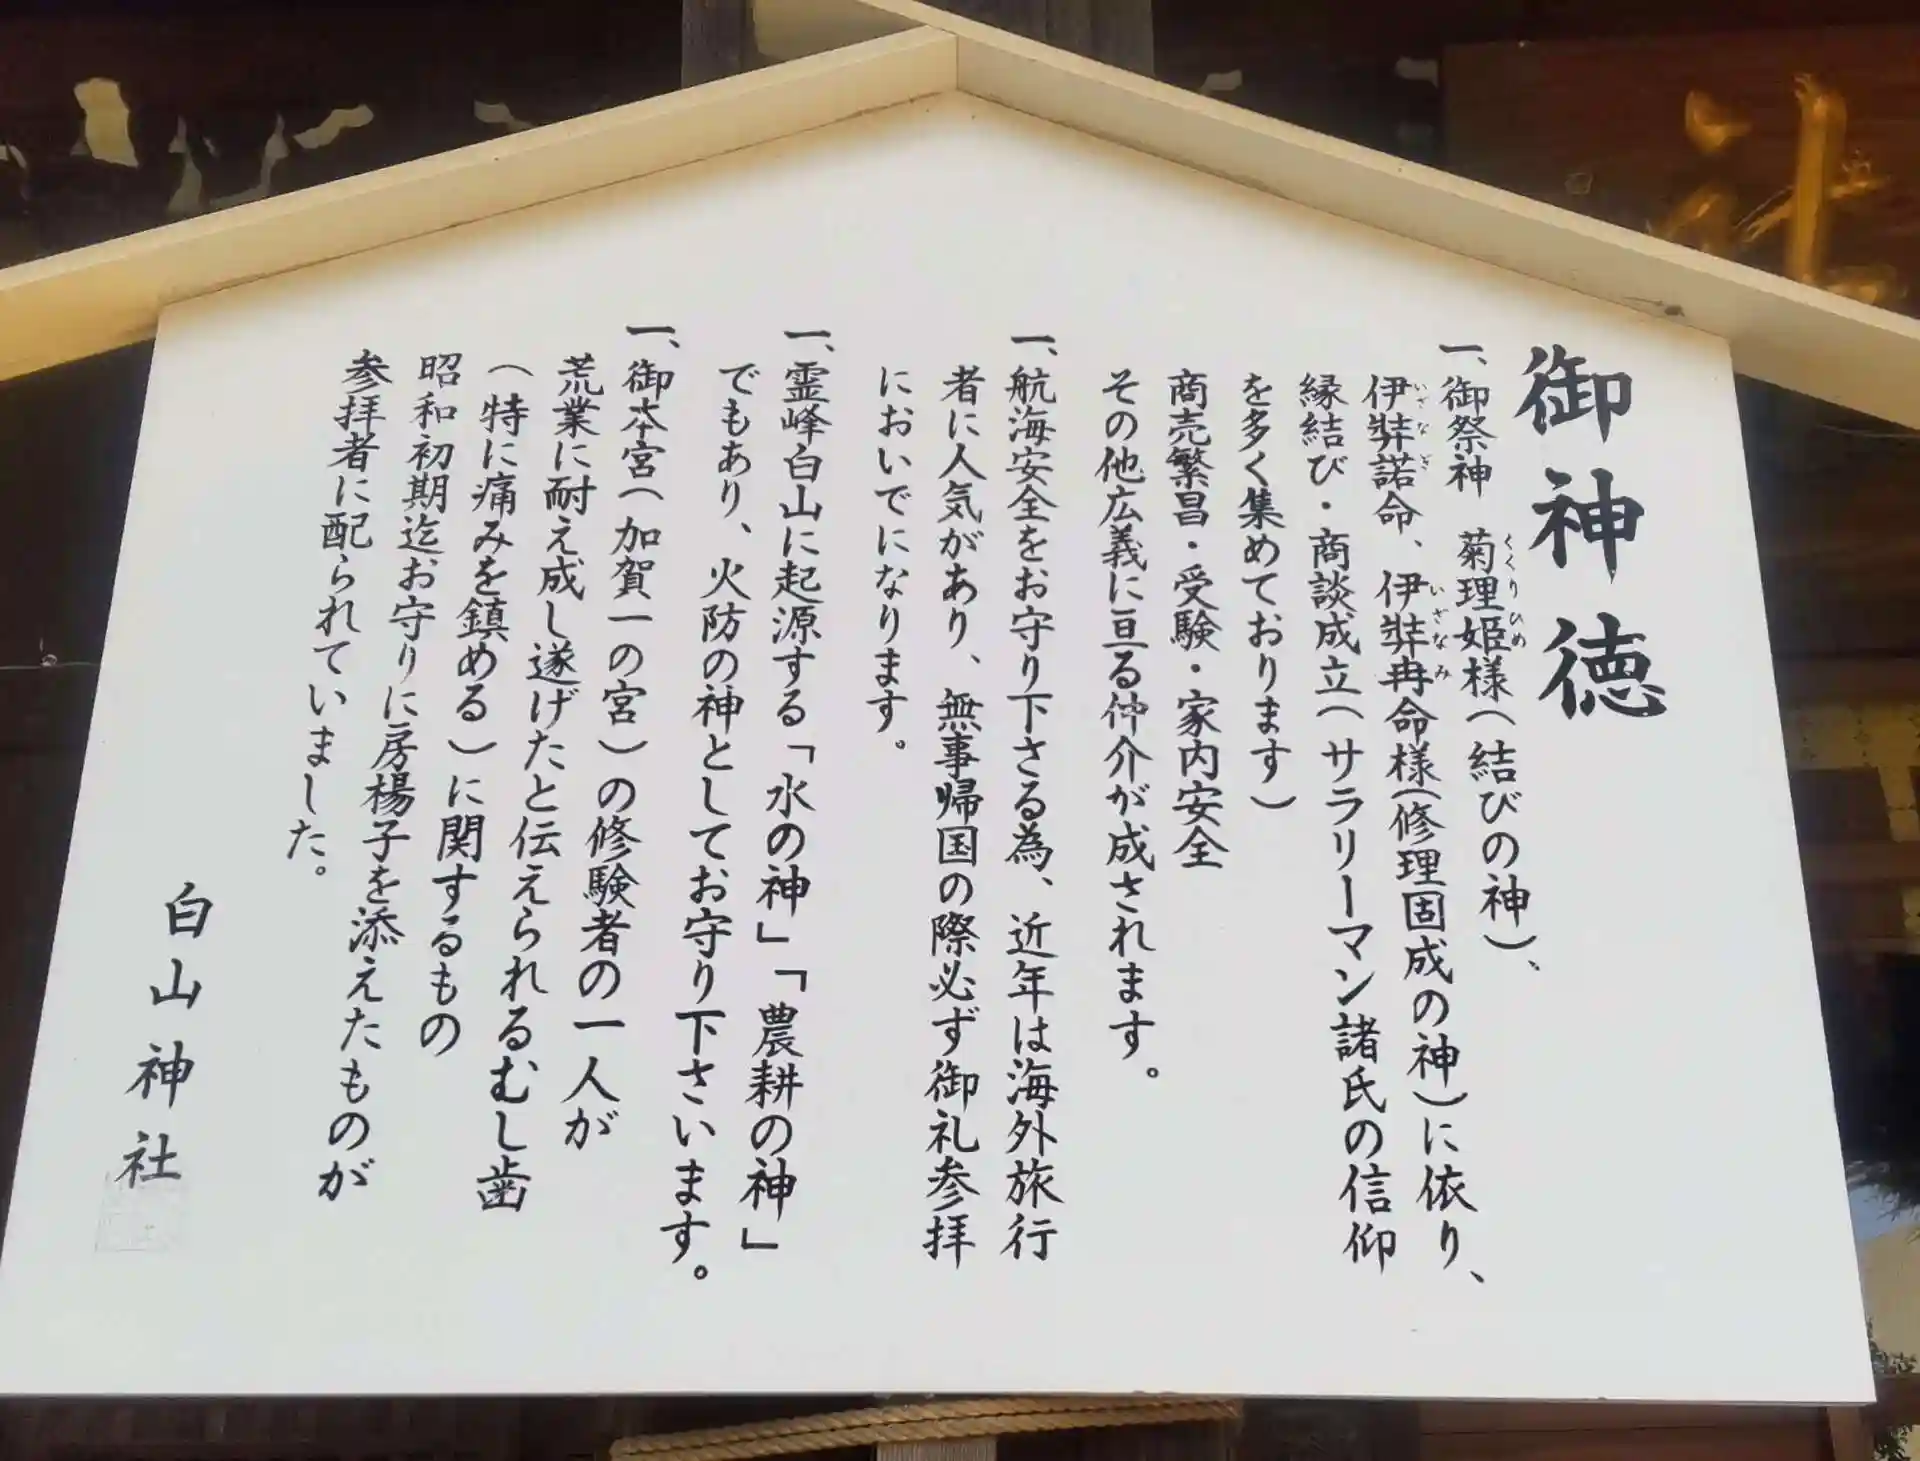 御神徳
一、御祭神　菊理姫様（結びの神）、
伊弉諾命、伊弉冉命様（修理固成の神）に依り、
縁結び・商談成立（サラリーマン諸氏の信仰
を多く集めております）
商売繁昌・受験・家内安全
その他広義に亘る仲介が成されます。
一、航海安全をお守り下さる為、近年は海外旅行
者に人気があり、無事帰国の際必ず御礼参拝
においでになります。
一、霊峰白山に起源する「水の神」「農耕の神」
でもあり、火防の神としてお守り下さいます。
一、御本宮（加賀一の宮）の修験者の一人が
荒業に耐え成し遂げたと伝えられるむし歯
（特に痛みを鎮める）に関するもの
昭和初期迄お守りに房楊子を添えたものが
参拝者に配られていました。
白山神社